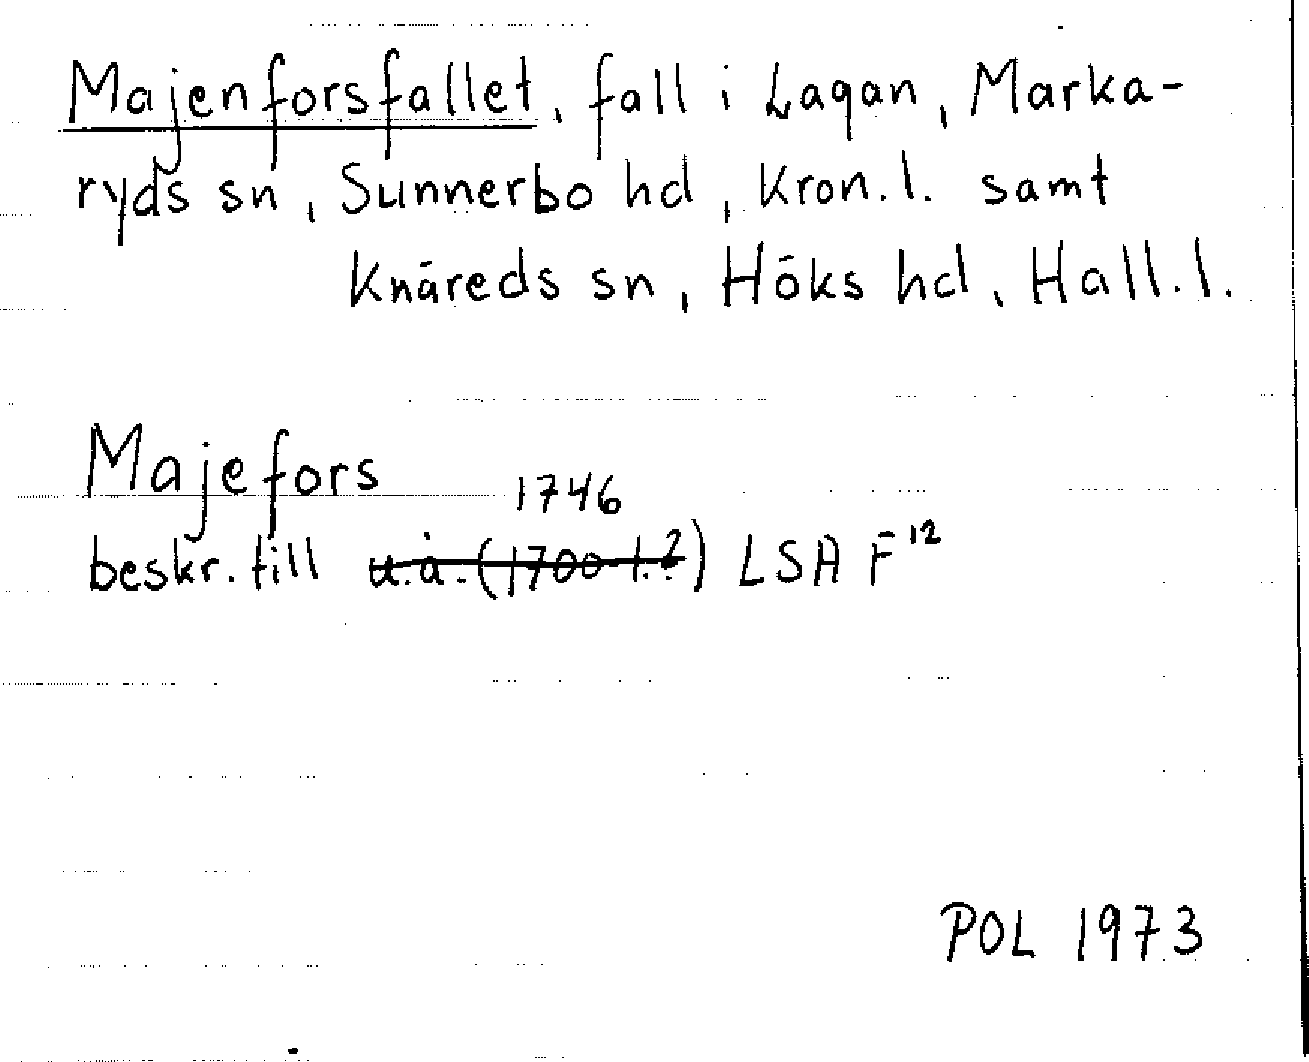 Majenforsfallet, fall i Lagan, Marka-
ryds sn, Sunnerbo hd, Kron.l. samt
Knäreds sn, Höks hd, Hall.l.
Majefors
1746
beskr. till u.å. (1700-t.?) LSA F¹²
POL 1973